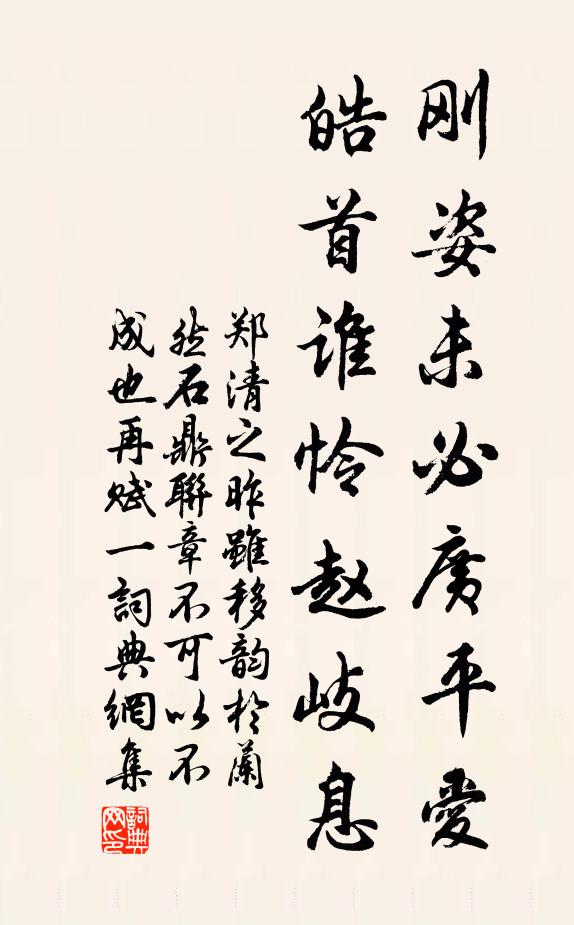 刚姿未必广平爱
皓首谁怜赵岐息
郑清之昨雖移韵於蘭
然石鼎聯章不可以不
成也再赋一詞典網集
詞典
网印